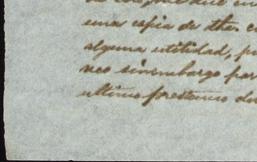 una copia de dha. c
alguna utilidad, p
neo sinembargo par
ultimo prestamo du